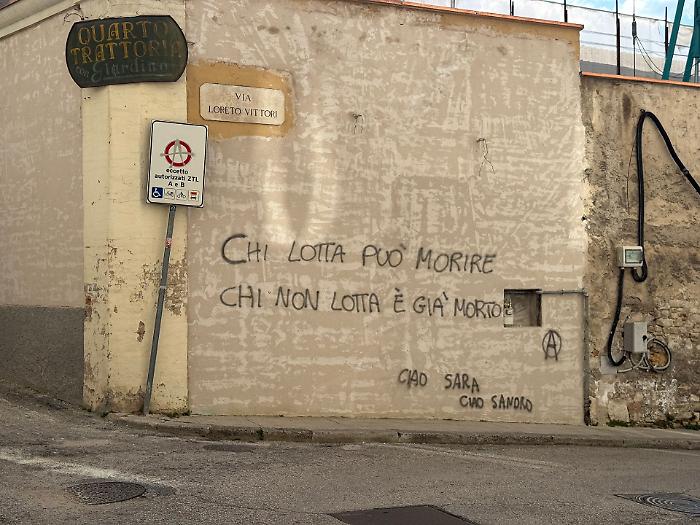 QUARTO
TRATTORIA
con Giardino
VIA
LORETO VITTORI
A
eccetto
autorizzati ZTL
A e B
CHI LOTTA PUÒ MORIRE
CHI NON LOTTA È GIÀ MORTO
A
CIAO SARA
CIAO SANDRO